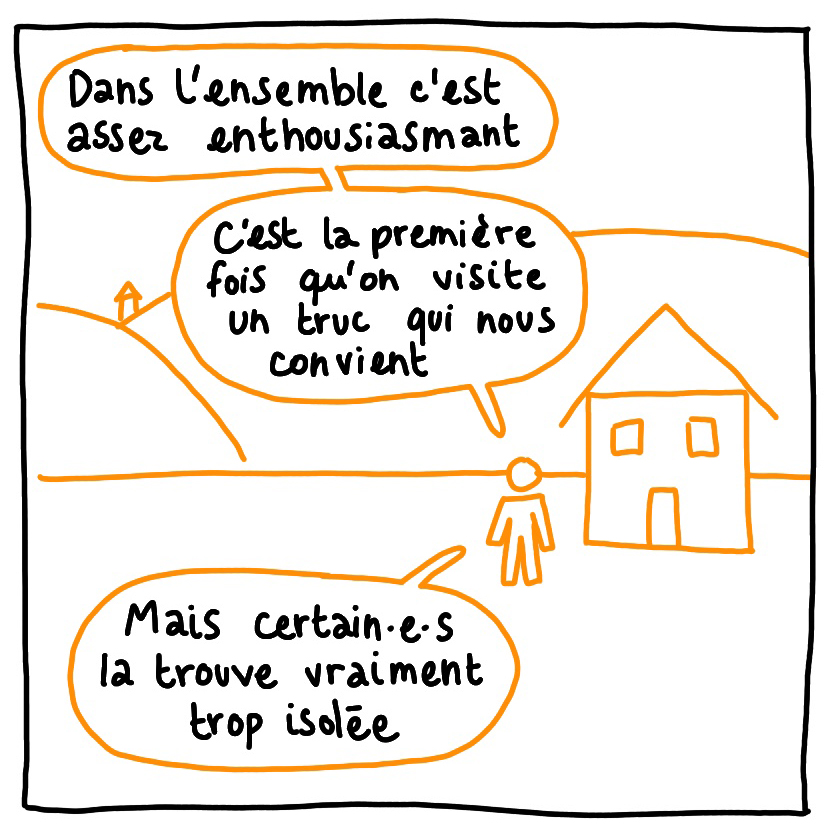 Dans l'ensemble c'est
assez enthousiasmant
C'est la première
fois qu'on visite
un truc qui nous
convient
Mais certain·e·s
la trouve vraiment
trop isolée